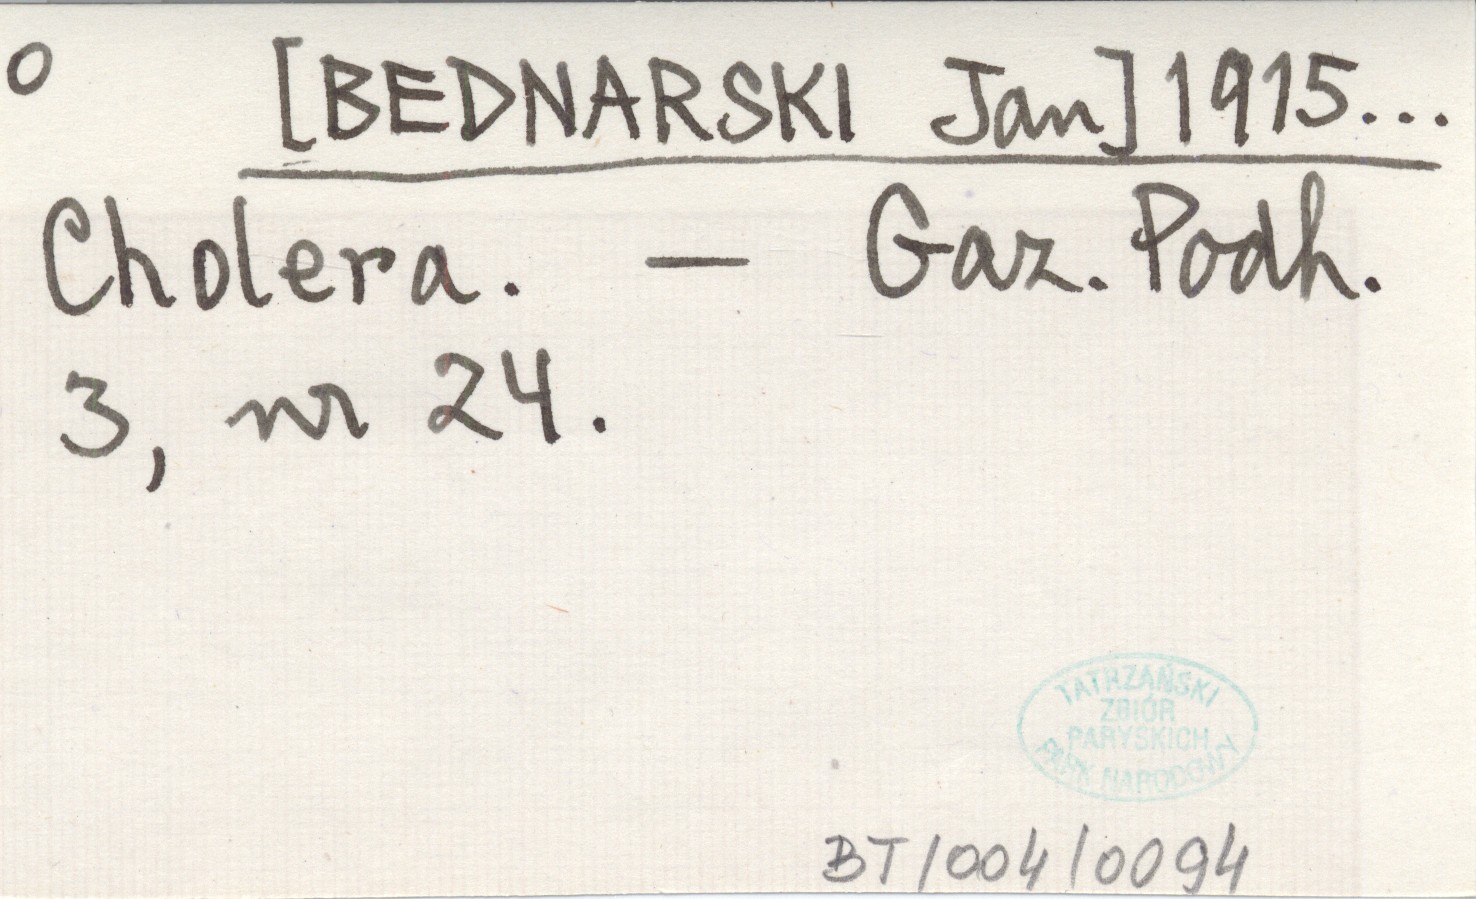 o [BEDNARSKI Jan] 1915...
Cholera. — Gaz. Podh.
3, nr 24.
TATRZAŃSKI
ZBIÓR
PARYSKICH
PARK NARODOWY
BT/004/0094